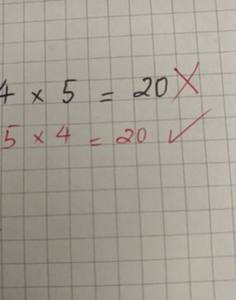 4 × 5 = 20 ✗
5 × 4 = 20 ✓